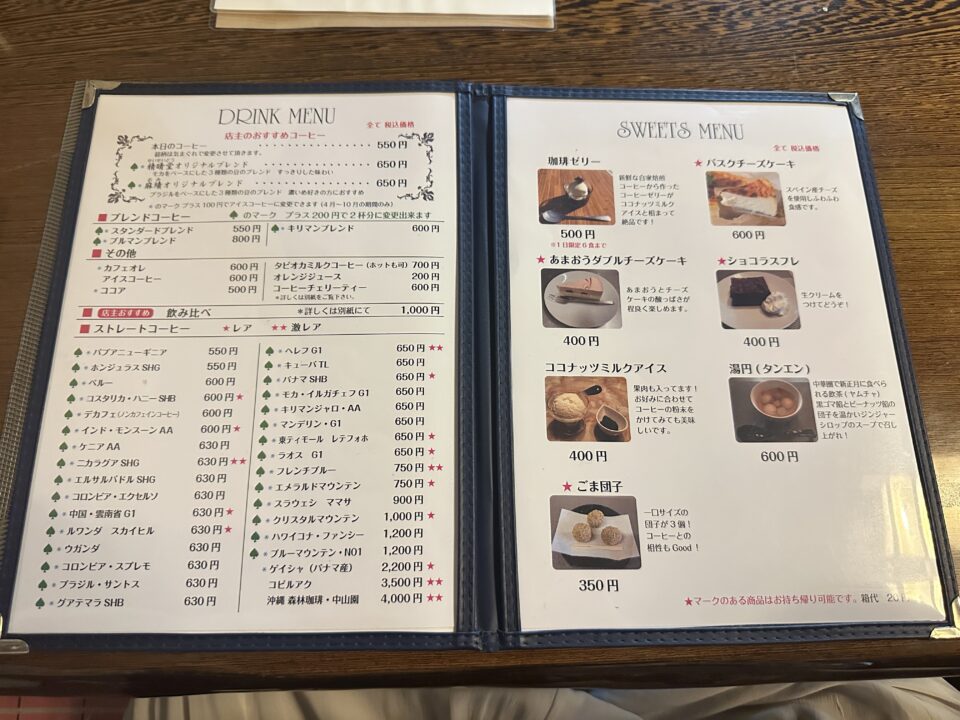 DRINK MENU
全て 税込価格
店主のおすすめコーヒー
本日のコーヒー ・・・・・・・・・・・・・・・ 550円
銘柄は気まぐれで変更させて頂きます。
♠*精晴堂オリジナルブレンド ・・・・・・・・・ 650円
モカをベースにした3種類の豆のブレンド すっきりした味わい
♠*麻績オリジナルブレンド ・・・・・・・・・・ 650円
ブラジルをベースにした3種類の豆のブレンド 濃いめ好きの方におすすめ
*のマーク プラス100円でアイスコーヒーに変更できます(4月~10月の期間のみ)
■ ブレンドコーヒー ♠のマーク プラス200円で2杯分に変更出来ます
♠*スタンダードブレンド 550円
♠*ブルマンブレンド 800円
♠*キリマンブレンド 600円
■ その他
*カフェオレ 600円
アイスコーヒー 600円
*ココア 500円
タピオカミルクコーヒー(ホットも可) 700円
オレンジジュース 200円
コーヒーチェリーティー 600円
*詳しくは別紙をご覧下さい。
■ 店主おすすめ 飲み比べ *詳しくは別紙にて 1,000円
■ ストレートコーヒー ★レア ★★激レア
♠*パプアニューギニア 550円
♠*ホンジュラスSHG 550円
♠*ペルー 600円
♠*コスタリカ・ハニーSHB 600円★
♠*デカフェ(ノンカフェインコーヒー) 600円
♠*インド・モンスーンAA 600円★
♠*ケニアAA 630円
♠*ニカラグアSHG 630円★★
♠*エルサルバドルSHG 630円
♠*コロンビア・エクセルソ 630円
♠*中国・雲南省G1 630円★
♠*ルワンダ スカイヒル 630円★
♠*ウガンダ 630円
♠*コロンビア・スプレモ 630円
♠*ブラジル・サントス 630円
♠*グアテマラSHB 630円
♠*ヘレフG1 650円★★
♠*キューバTL 650円
♠*パナマSHB 650円★
♠*モカ・イルガチェフG1 650円
♠*キリマンジャロ・AA 650円
♠*マンデリン・G1 650円
♠*東ティモール レテフォホ 650円★
♠*ラオス G1 650円★
♠*フレンチブルー 750円★★
♠*エメラルドマウンテン 750円★
♠*スラウェシ ママサ 900円
♠*クリスタルマウンテン 1,000円★
♠*ハワイコナ・ファンシー 1,200円
♠*ブルーマウンテン・NO1 1,200円
*ゲイシャ(パナマ産) 2,200円★
コピルアク 3,500円★★
沖縄 森林珈琲・中山園 4,000円★★
SWEETS MENU
全て 税込価格
珈琲ゼリー
新鮮な自家焙煎
コーヒーから作った
コーヒーゼリーが
ココナッツミルク
アイスと相まって
絶品です!
500円
※1日限定6食まで
★バスクチーズケーキ
スペイン産チーズ
を使用しふわふわ
食感です。
600円
★あまおうダブルチーズケーキ
あまおうとチーズ
ケーキの酸っぱさが
程良く楽しめます。
400円
★ショコラスフレ
生クリームを
つけてどうぞ!
400円
ココナッツミルクアイス
果肉も入ってます!
お好みに合わせて
コーヒーの粉末を
かけてみても美味
しいです。
400円
湯円(タンエン)
中華圏で新正月に食べら
れる飲茶(ヤムチャ)
黒ゴマ餡とピーナッツ餡の
団子を温かいジンジャー
シロップのスープで召し
上がれ!
600円
★ごま団子
一口サイズの
団子が3個!
コーヒーとの
相性もGood!
350円
★マークのある商品はお持ち帰り可能です。箱代 20円